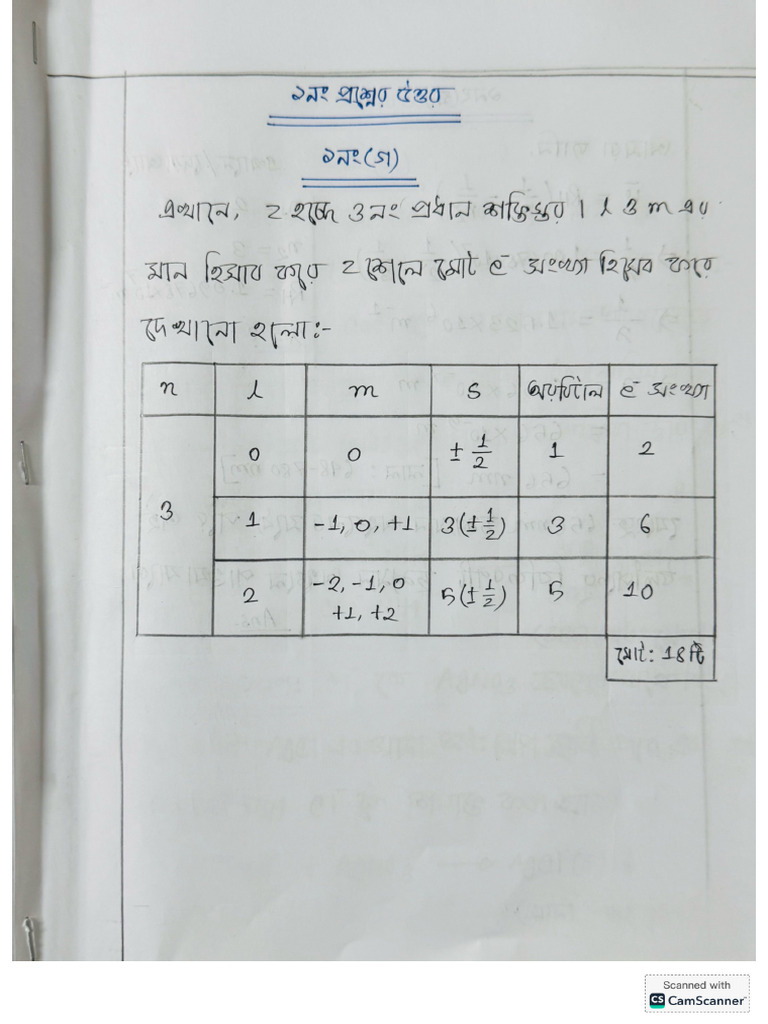 ১নং প্রশ্নের উত্তর
১নং(গ)
এখানে, Z হচ্ছে ৩নং প্রধান শক্তিস্তর। l ও m এর
মান হিসাব করে Z শেলে মোট e⁻ সংখ্যা হিসেব করে
দেখানো হলো:-
n l m s অরবিটাল e⁻ সংখ্যা
3 0 0 ± 1/2 1 2
1 -1, 0, +1 3(± 1/2) 3 6
2 -2, -1, 0 +1, +2 5(± 1/2) 5 10
মোট: 18টি
Scanned with
CS CamScanner